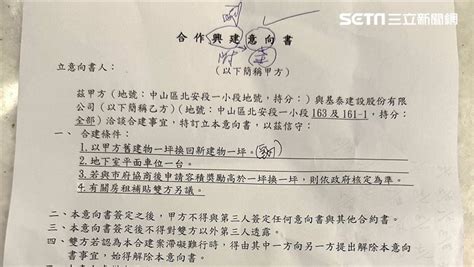 SETN 三立新聞網
合作興建意向書
立意向書人：
（以下簡稱甲方）
茲甲方（地號：中山區北安段一小段地號，持分：）與基泰建設股份有限
公司（以下簡稱乙方）（地號：中山區北安段一小段 163 及 161-1，持分：
全部）洽談合建事宜，特訂立本意向書，以茲信守：
一、合建條件：
1. 以甲方舊建物一坪換回新建物一坪。
2. 地下室平面車位一台。
3. 若與市府協商後申請容積獎勵高於一坪換一坪，則依政府核定為準。
4. 有關房租補貼雙方另議。
二、本意向書簽定之後，甲方不得與第三人簽定任何意向書與其他合約書。
三、本意向書簽定後不得對雙方以外第三人透露。
四、雙方若認為本合建案滯礙難行時，得由其中一方向另一方提出解除本意向
書事宜，始得解除本意向書。